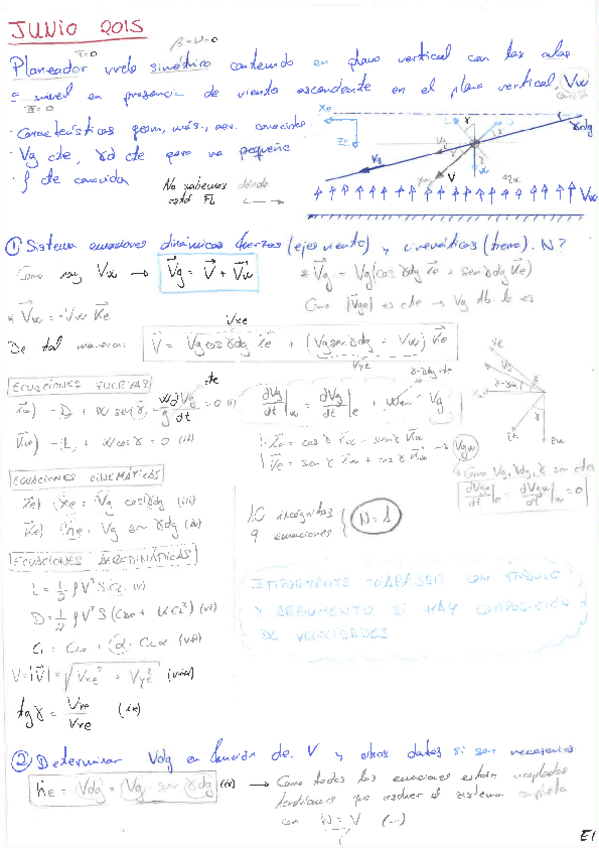 JUNIO 2015
T=0
β=ν=0
Planeador vuelo simétrico contenido en plano vertical con las alas
a nivel en presencia de viento ascendente en el plano vertical, Vw
Φ=0
cte
· Características geom, más., aer. conocidas
· Vg cte, γd cte pero no pequeño
· ρ cte conocida
No sabemos dónde
está FL
① Sistema ecuaciones dinámicas fuerzas (ejes viento) y cinemáticas (tierra). N?
Como hay Vw → Vg = V + Vw
* Vg = Vg(cos γdg ie + sen γdg ke)
Como |Vg| es cte → Vg tb lo es
* Vw = -Vw ke
De tal manera:
V = Vg cos γdg ie + (Vg sen γdg - Vw) ke
Vxe
Vye
ECUACIONES FUERZAS
cte
iw) - D + W sen γ - W/g dVg/dt = 0 (i)
kw) - L + W cos γ = 0 (ii)
dVg/dt|w = dVg/dt|e +
ie = cos γ iw - sen γ kw
ke = sen γ iw + cos γ kw → Vgw
* Como Vg, γdg, γ son ctes
dVge/dt|e = dVgw/dt|w = 0
ECUACIONES CINEMÁTICAS
ie) xe = Vg cos γdg (iii)
ke) he = Vg sen γdg (iv)
10 incógnitas
9 ecuaciones
N=1
ECUACIONES AERODINÁMICAS
L = 1/2 ρ V² S CL (v)
D = 1/2 ρ V² S (CD0 + K CL²) (vi)
CL = CL0 + α CLα (vii)
V = |V| = √(Vxe² + Vye²) (viii)
tg γ = Vye/Vxe (ix)
IMPORTANTE TRABAJAR CON MÓDULO
Y ARGUMENTO SI HAY COMPOSICIÓN
DE VELOCIDADES
② Determinar Vdg en función de V y otros datos si son necesarios
he = Vdg = Vg sen γdg (iv) → Como todas las ecuaciones están acopladas
tendríamos que resolver el sistema completo
con N = V (...)
E1